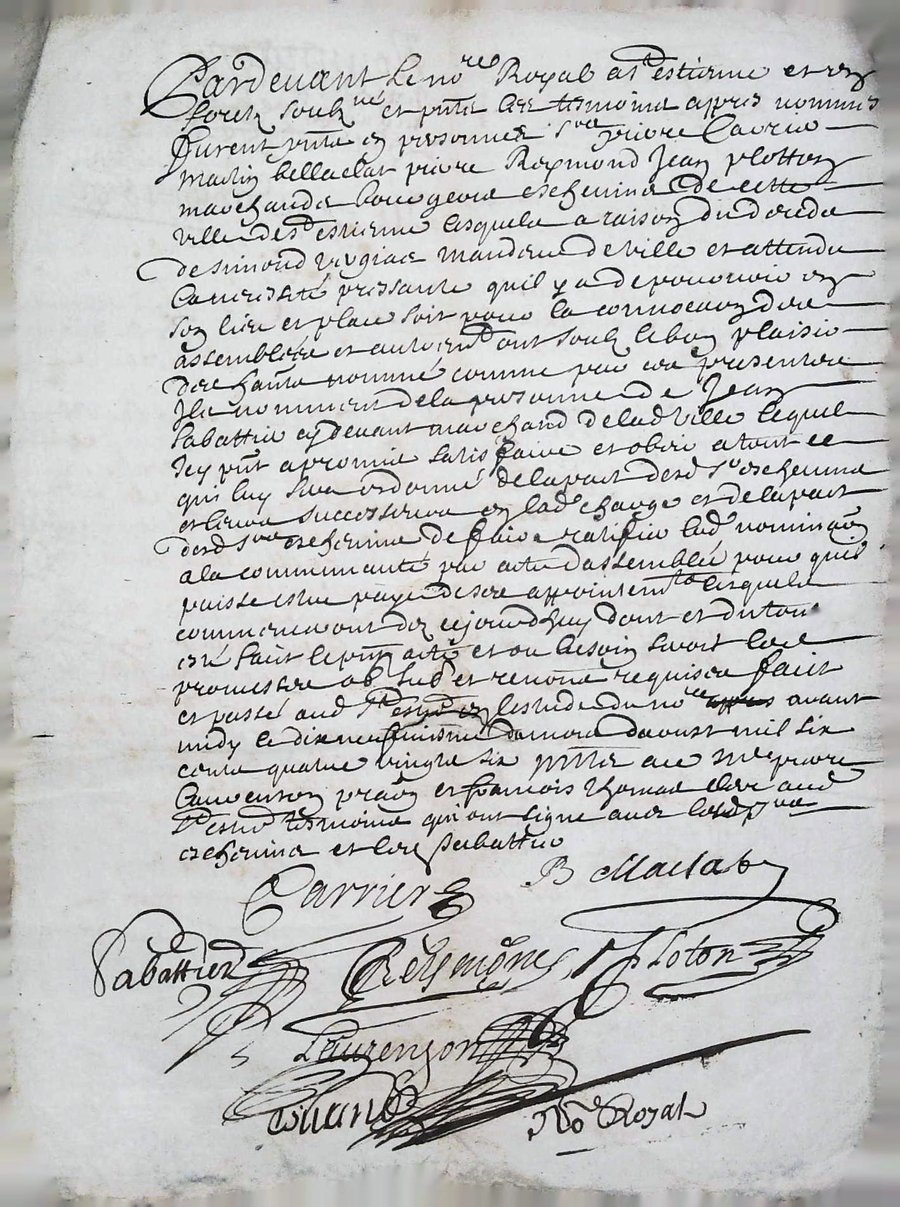 Pardevant le no.re Royal a s.t estienne et en
forest soubz.né et pnts les tesmoins appres nommes
furent pnts en personnes s.rs pierre Carrier
marcin bellaclat pierre Reymond Jean plotton
marchands bourgeois eschevins de cette
ville de s.t estienne lesquels a raison du deceds
de simond mandeur de ville et attendu
la necessité pressante quil y a de pourvoir en
son lieu et place soit pour la convocaon des
assemblées et autrem.t ont soubz le bon plaisir
des nommé comme par ces presentes
Ils nomment de la personne de Jean
Sabattier cy devant marchand de lad ville lequel
icy pnt a promis satisfaire et obeir a tout ce
qui luy sera ordonné de la part desd s.rs eschevins
et leurs successeurs en lad charge et de la part
desd s.rs eschevins de faire ratifier lad nominaon
a la communauté par acte dassemblée pour quil
puisse estre payé de ses appointem.ts lesquels
commenceront dez cejourdhuy dont et du tout
a esté fait le pnt acte et ou besoin seroit lesd
promesses ob sub et renons requises fait
et passé aud s.t estienne en lestude du no.re avant
midy le dix neufviesme de mois daoust mil six
cents quatre vingts six pnts ace m.e pierre
Laurenson praon et francois thomas clerc aud
s.t estie tesmoins qui ont signé avec lesd s.rs
eschevins et led Sabattier
Carrier B Maclat
Sabattier Reymond P Ploton
Laurenson
No.re Royal